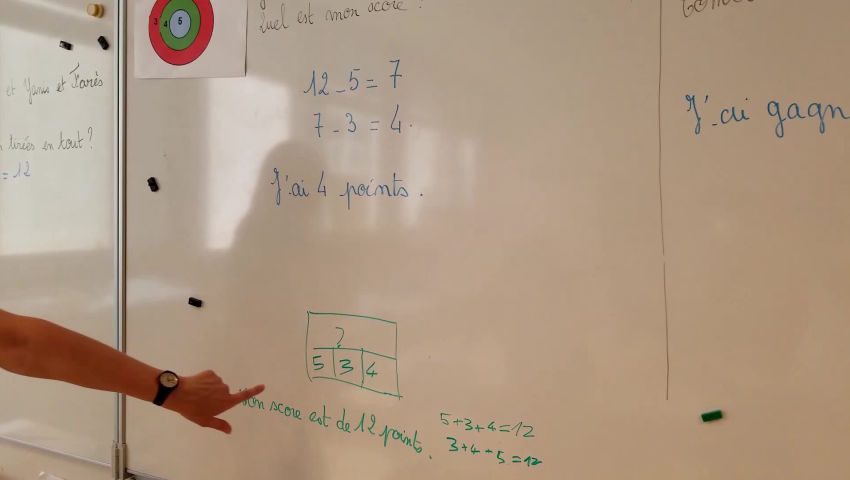 3 4 5
Quel est mon score ?
12 - 5 = 7
7 - 3 = 4.
J'ai 4 points.
et Yanis et Farès
tirées en tout ?
= 12
J'ai gagn
?
5 3 4
Mon score est de 12 points.
5+3+4=12
3+4+5=12